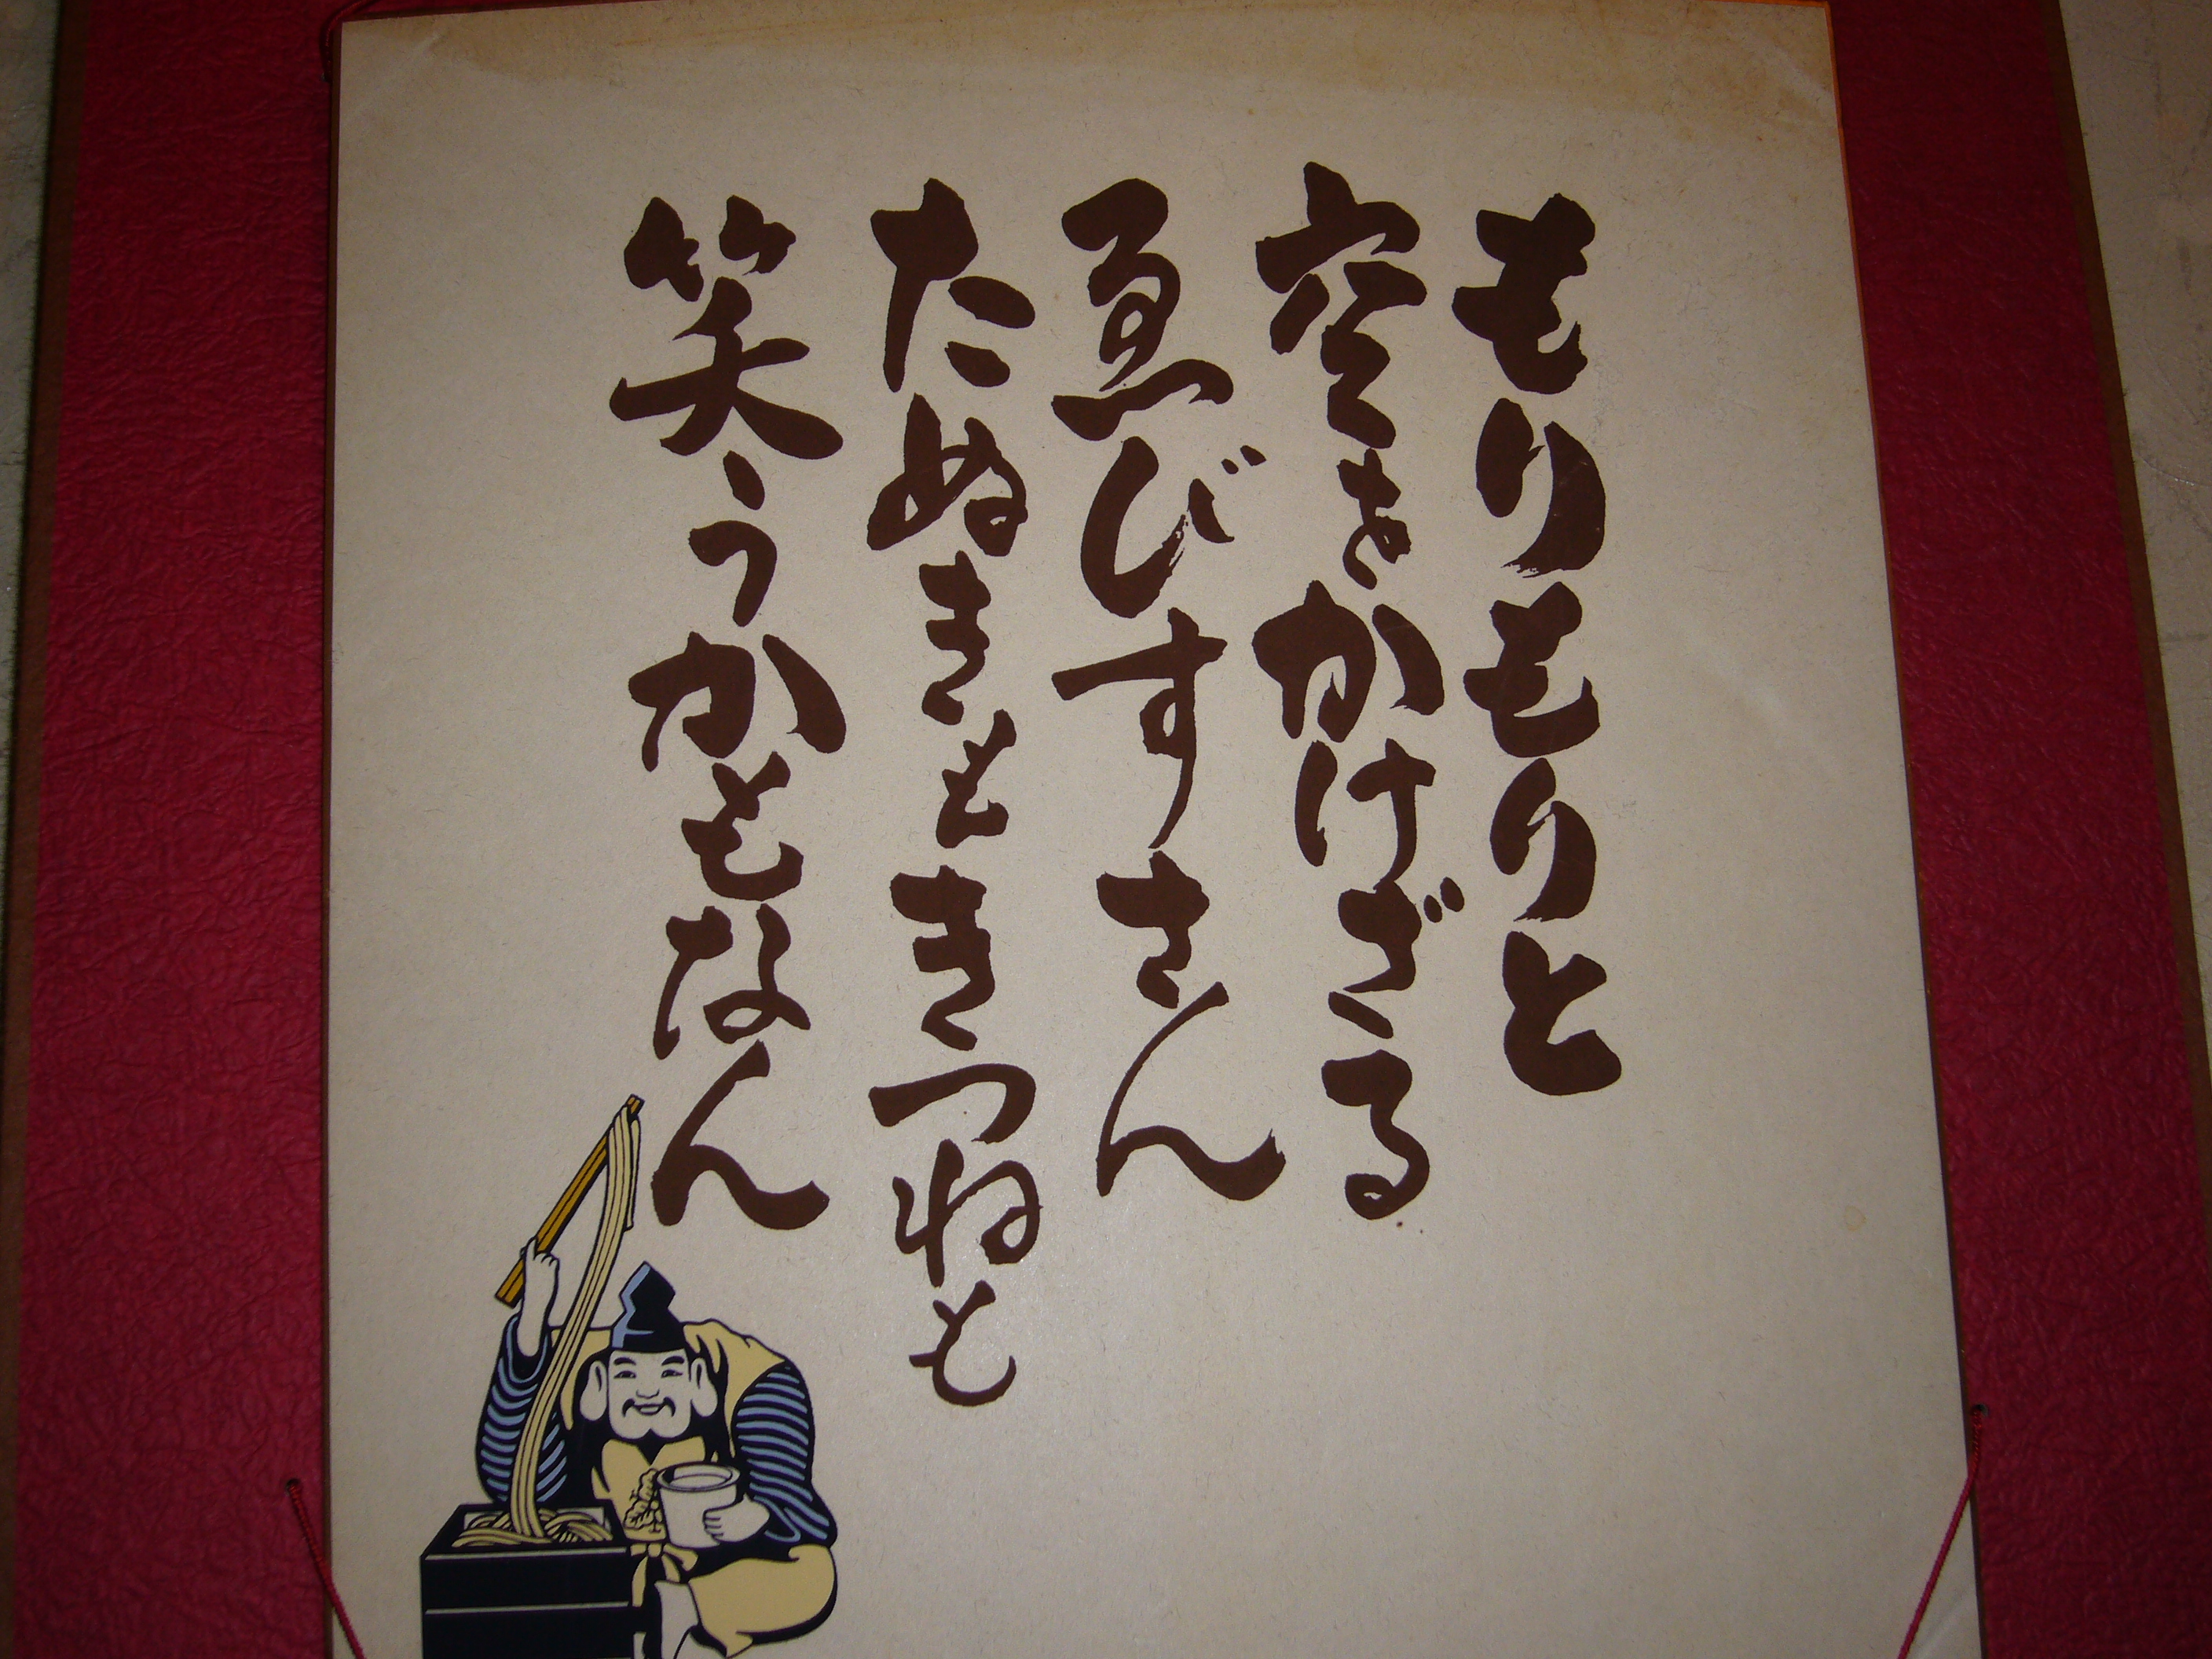 もりもりと
空をかけざる
ゑびすさん
たぬきもきつねも
笑うかもなん